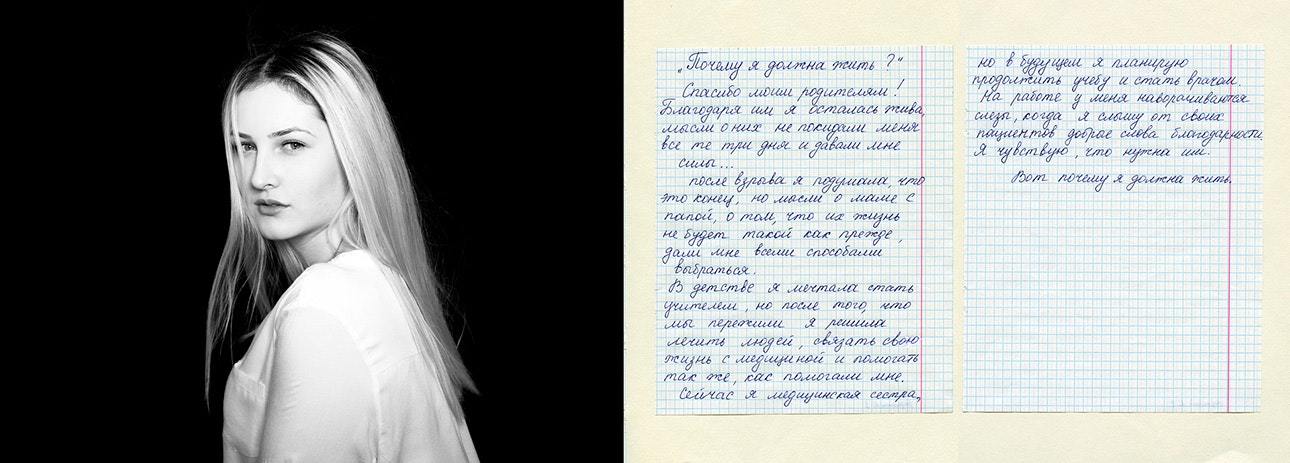 „Почему я должна жить?"
Спасибо моим родителям!
Благодаря им я осталась жива,
мысли о них не покидали меня
все те три дня и давали мне
силы...
после взрыва я подумала, что
это конец, но мысли о маме с
папой, о том, что их жизнь
не будет такой как прежде,
дали мне всеми способами
выбраться.
В детстве я мечтала стать
учителем, но после того, что
мы пережили я решила
лечить людей, связать свою
жизнь с медициной и помогать
так же, как помогали мне.
Сейчас я медицинская сестра,
но в будущем я планирую
продолжить учебу и стать врачом.
На работе у меня наворачиваются
слезы, когда я слышу от своих
пациентов доброе слова благодарности.
Я чувствую, что нужна им.
Вот почему я должна жить.